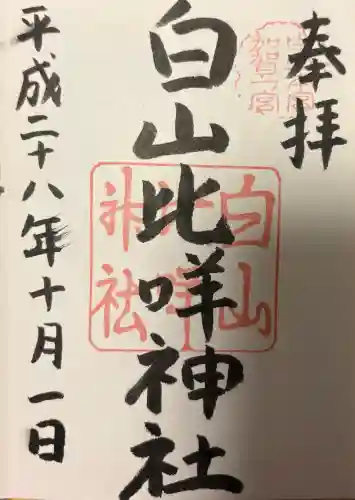 奉拝
白山比咩神社
平成二十八年十月一日
加賀一宮
白山比咩神社